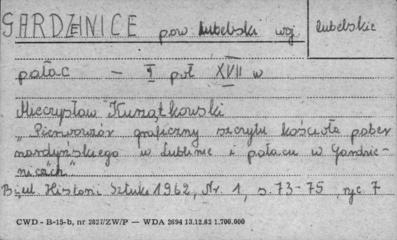 GARDZIENICE pow lubelski woj lubelskie
pałac - I poł XVII w
Mieczysław Kurzątkowski
„Pierwowzór graficzny szczytu kościoła pober
nardyńskiego w Lublinie i pałacu w Gardzie-
nicach"
Biul Historii Sztuki 1962, Nr. 1, s. 73-75, ryc 7
CWD - B-15-b, nr 2827/ZW/P — WDA 2694 13.12.62 1.700.000